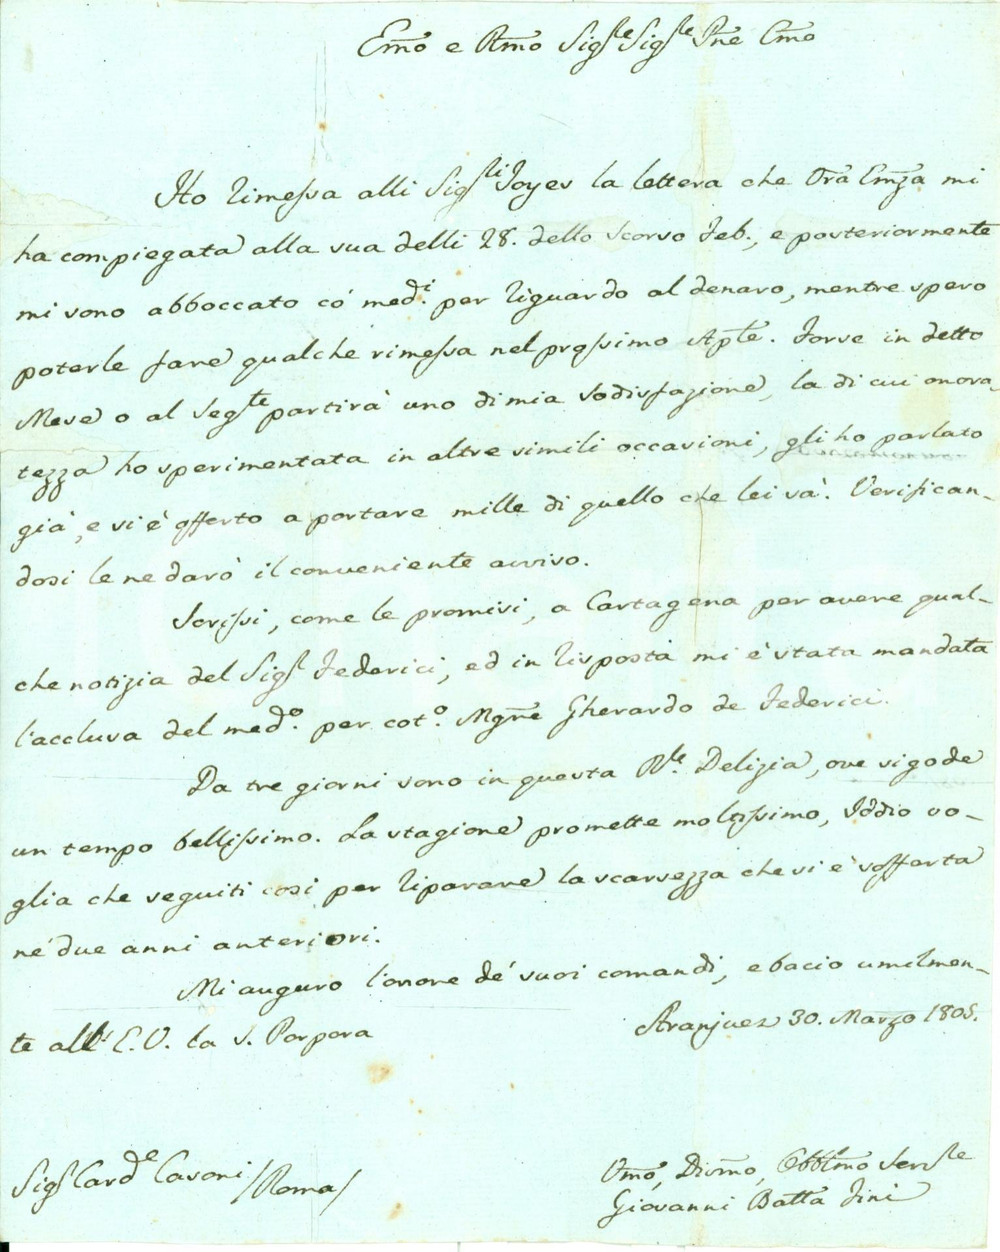 Emo e Rmo Sigre Sigre Pne Cmo
Ho rimessa alli Sigri Joyes la lettera che Vra Emza mi
ha compiegata alla sua delli 28. dello scorso Feb., e posteriormente
mi sono abboccato co' medi per riguardo al denaro, mentre spero
poterle fare qualche rimessa nel prossimo Aple. Forse in detto
Mese o al Segte partirà uno di mia sodisfazione, la di cui onora-
tezza ho sperimentata in altre simili occasioni, gli ho parlato
già, e si è offerto a portare mille di quello che lei sà. Verifican-
dosi le ne darò il conveniente avviso.
Scrissi, come le promisi, a Cartagena per avere qual-
che notizia del Sigr Federici, ed in risposta mi è stata mandata
l'acclusa del medo. per coto. Mgre Gherardo de Federici.
Da tre giorni sono in questa Rle. Delizia, ove si gode
un tempo bellissimo. La stagione promette moltissimo, Iddio vo-
glia che seguiti così per riparare la scarsezza che si è sofferta
ne' due anni anteriori.
Mi auguro l'onore de' suoi comandi, e bacio umilmen-
te all' E. V. la S. Porpora
Aranjuez 30. Marzo 1805.
Sigr Carde Casoni /Roma/
Umo, Divmo, Obblmo Servre
Giovanni Batta Fini